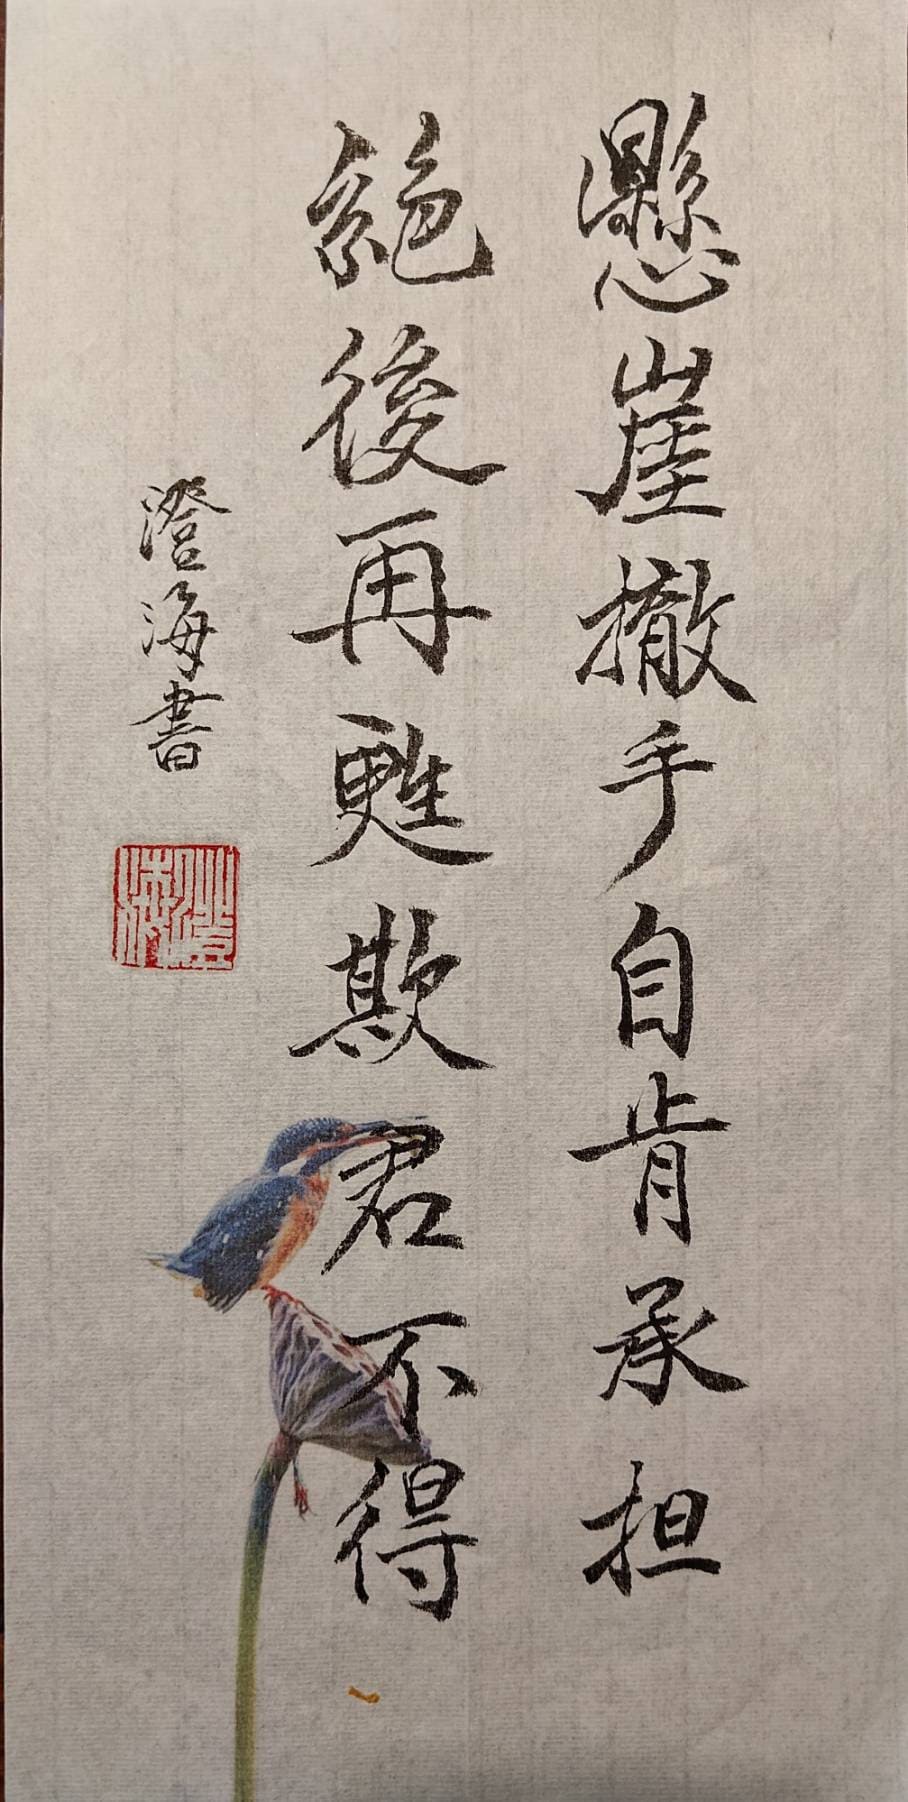 懸崖撒手自肯承担
絕後再甦欺君不得
澄海書